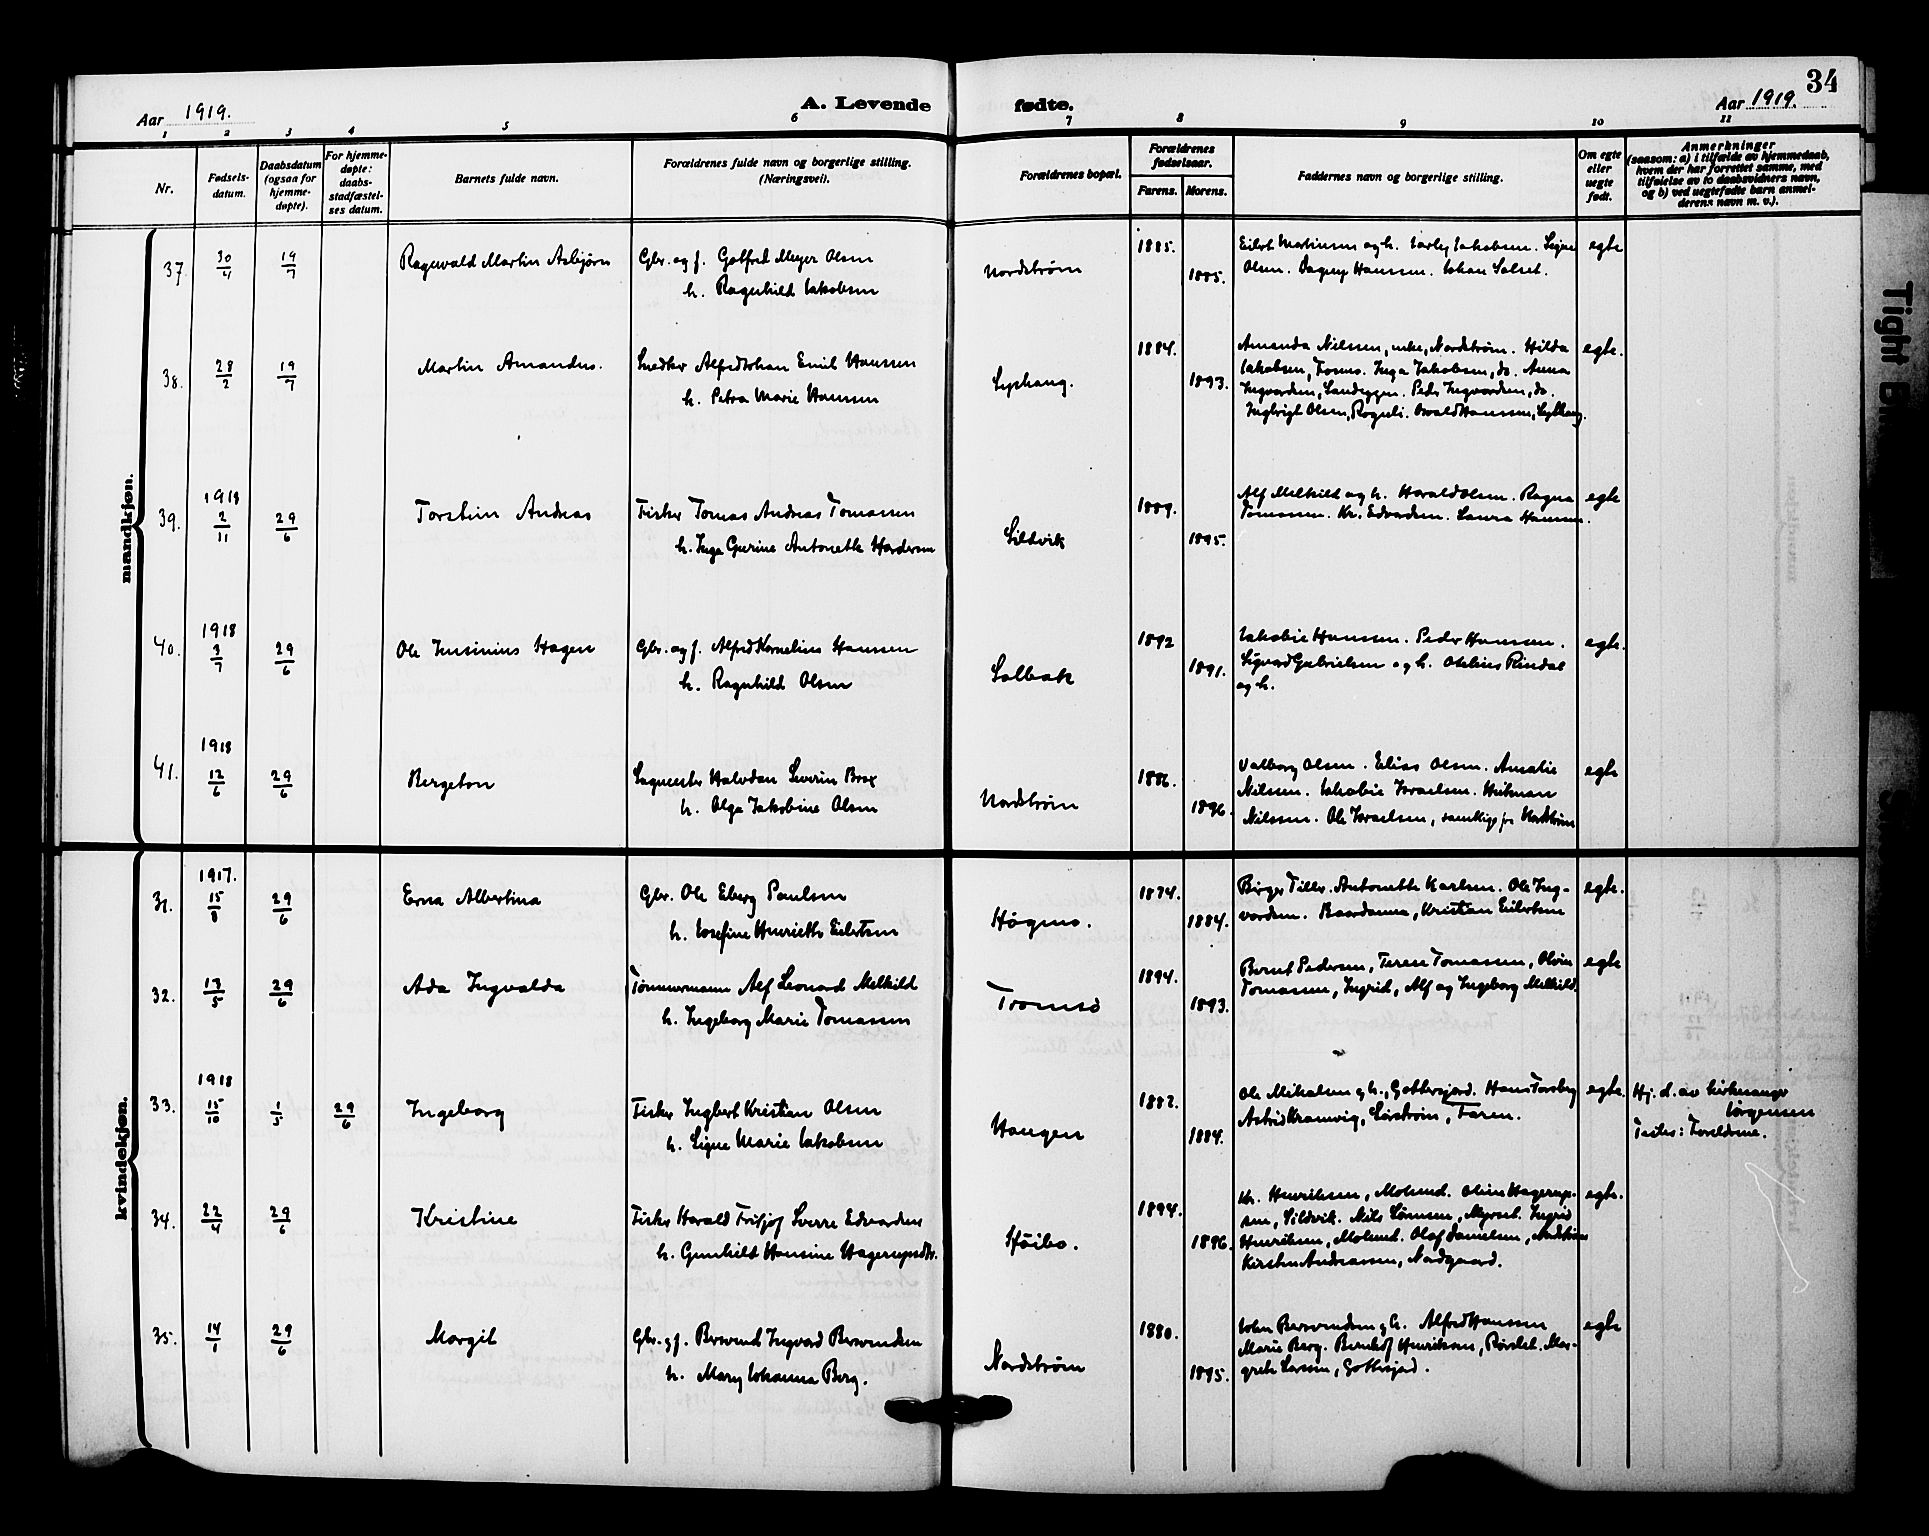 34
Aar 1919.
A. Levende fødte.
Aar 1919.
1 2 3 4 5 6 7 8 9 10 11
Nr.
Fødsels-
datum.
Daabsdatum
(ogsaa for
hjemme-
døpte).
For hjemme-
døpte:
daabs-
stadfæstel-
ses datum.
Barnets fulde navn.
Forældrenes fulde navn og borgerlige stilling.
(Næringsvei).
Forældrenes bopæl.
Forældrenes
fødselsaar.
Farens. Morens.
Faddernes navn og borgerlige stilling.
Om egte
eller
uegte
født.
Anmerkninger
(saasom: a) i tilfælde av hjemmedaab,
hvem der har forrettet samme, med
tilføielse av to daabsvidners navn,
og b) ved uegtefødte barn anmel-
derens navn m. v.).
mandkjøn.
37. 30/4 19/7 Ragnvald Martin Asbjørn
Gbr. og f. Gotfred Meyer Olsen
h. Ragnhild Jakobsen
Nordstrøm 1885. 1885.
Eilert Martinsen og h. Jakobsen. Signe
Olsen. Dagny Hanssen. Johan Solset.
egte
38. 28/2 19/7 Martin Amandus.
Snedker Alfred Johan Emil Hanssen
h. Petra Marie Hanssen
1884. 1893.
Amanda Nilssen, enke, Nordstrøm. Hilda
Jakobsen, Inga Jakobsen, do. Anna
Ingvardsen, Sandeggen. Peder Ingvardsen, do.
Ingbrigt Olsen, Rogneli. Osvald Hanssen,
egte.
39. 1918 2/11 29/6 Torstein Andreas
Fisker Tomas Andreas Tomassen
h. Inga Antonette
Sildvik 1889. 1895.
Alf Melkild og h. Harald Olsen. Ragna
Tomassen. Kr. Edvardsen. Laura Hanssen.
egte
40. 1918 3/7 29/6 Ole Hagen
Gbr. og f. Alfred Kornelius Hanssen
h. Ragnhild Olsen
Solbak 1892 1891.
Jakobie Hanssen. Peder Hanssen.
Sigvard Gabrielsen og h. Otelius Rindal
og h.
egte.
41. 1918 12/6 29/6 Bergeton
Halvdan Severin Brox
h. Olga Jakobine Olsen
Nordstrøm 1886. 1896.
Valborg Olsen. Elias Olsen. Amalie
Nilssen. Jakobie Israelsen.
Nilssen. Ole Israelsen, samtlige fra Nordstrøm
egte
kvindekjøn.
31. 1917. 15/8 29/6 Erna Albertina
Gbr. Ole Eberg Paulsen
h. Josefine Henriette Eilertsen
Høgmo. 1874. 1884.
Birger Tiller. Antonette Karlsen. Ole Ing-
vardsen. Kristian Eilertsen
egte.
32. 13/5 29/6 Ada Ingvalda
Tømmermann Alf Leonard Melkild
h. Ingeborg Marie Tomassen
Tromsø 1894. 1893.
Bernt Pedersen, Terese Tomassen,
Tomassen, Ingrid, Alf og Ingeborg Melkild.
egte
33. 1918 15/10 1/5 29/6 Ingeborg
Fisker Ingbert Kristian Olsen
h. Signe Marie Jakobsen
Haugen 1882. 1884.
Ole Mikalsen og h., Gottesjord. Hans Torsberg
Astrid Kramvig, Sørstrøm, Faren.
egte.
Hj. d. av kirkesanger
Jørgensen
Testes: Foreldrene.
34. 22/4 29/6 Kristine
Fisker Harald Fritjof Sverre Edvardsen
h. Gunhild Hansine Hagerupsdtr.
Høibo. 1894. 1896.
Kr. Henriksen, Molund. Hagerup-
sen, Sildvik. Nils Sørensen, Myrset. Ingrid
Henriksen, Molund. Olaf Danielsen, Nordstrøm
Kirsten Andreassen, Nordgaard.
egte.
35. 14/1 29/6 Margit
Gbr. og f. Bervend Ingvard Berventsen
h. Mary Johanna Berg.
Nordstrøm 1880. 1895.
Johan og h. Alfred Hanssen
Marie Berg. Bernhof Henriksen, Mar-
grete Larssen, Gottesjord.
egte
Tight Bi